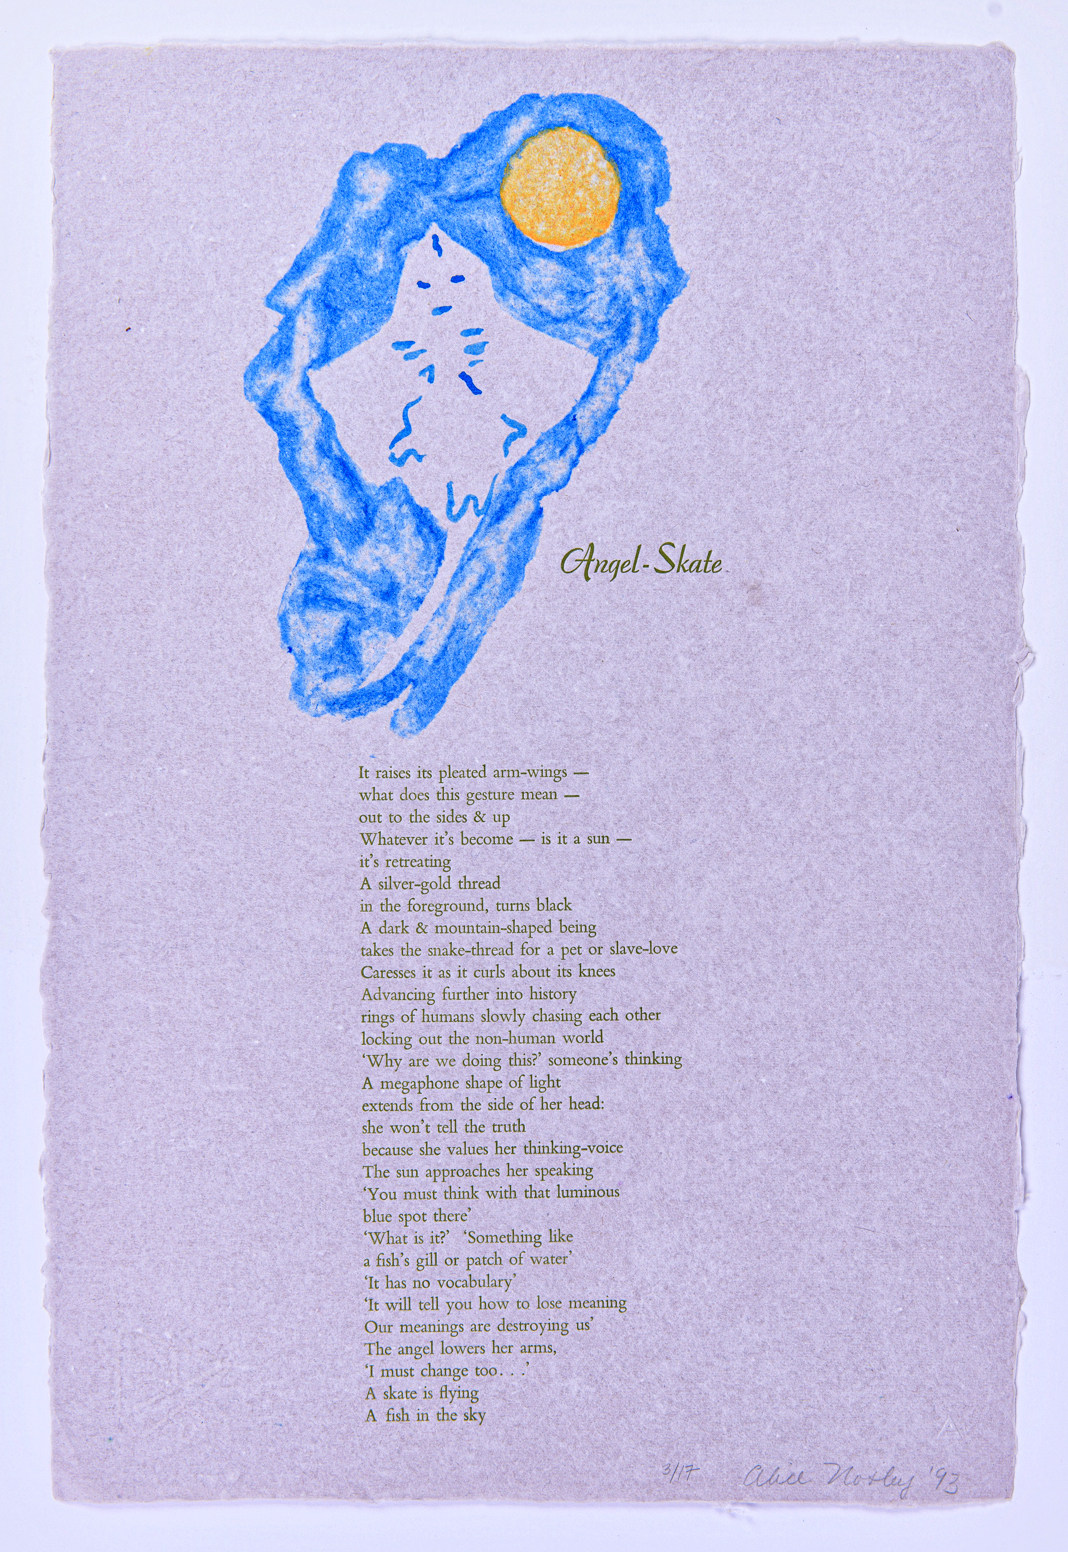 Angel-Skate
It raises its pleated arm-wings —
what does this gesture mean —
out to the sides & up
Whatever it's become — is it a sun —
it's retreating
A silver-gold thread
in the foreground, turns black
A dark & mountain-shaped being
takes the snake-thread for a pet or slave-love
Caresses it as it curls about its knees
Advancing further into history
rings of humans slowly chasing each other
locking out the non-human world
‘Why are we doing this?’ someone's thinking
A megaphone shape of light
extends from the side of her head:
she won't tell the truth
because she values her thinking-voice
The sun approaches her speaking
‘You must think with that luminous
blue spot there’
‘What is it?’ ‘Something like
a fish's gill or patch of water’
‘It has no vocabulary’
‘It will tell you how to lose meaning
Our meanings are destroying us’
The angel lowers her arms,
‘I must change too. . .’
A skate is flying
A fish in the sky
3/17 Alice Notley '93